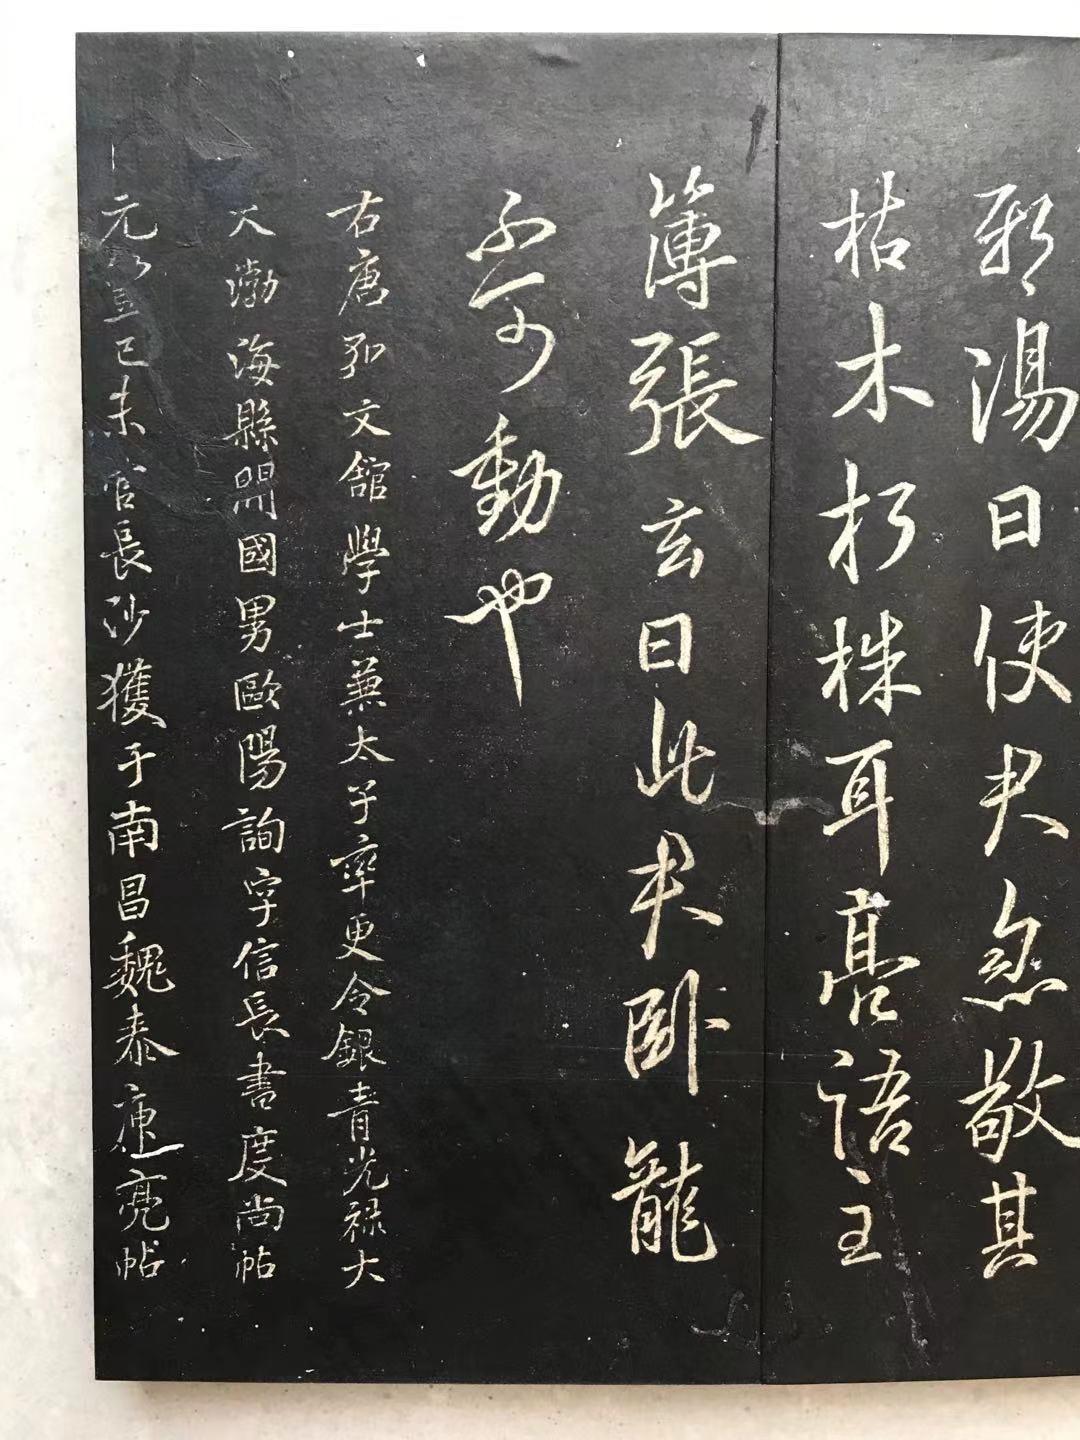 邪湯曰使君忽敬其
枯木朽株耳亮語主
簿張玄曰此君臥龍
不可動也
右唐弘文館學士兼太子率更令銀青光祿大
夫渤海縣開國男歐陽詢字信長書度尚帖
元豊己未官長沙獲于南昌魏泰庾亮帖